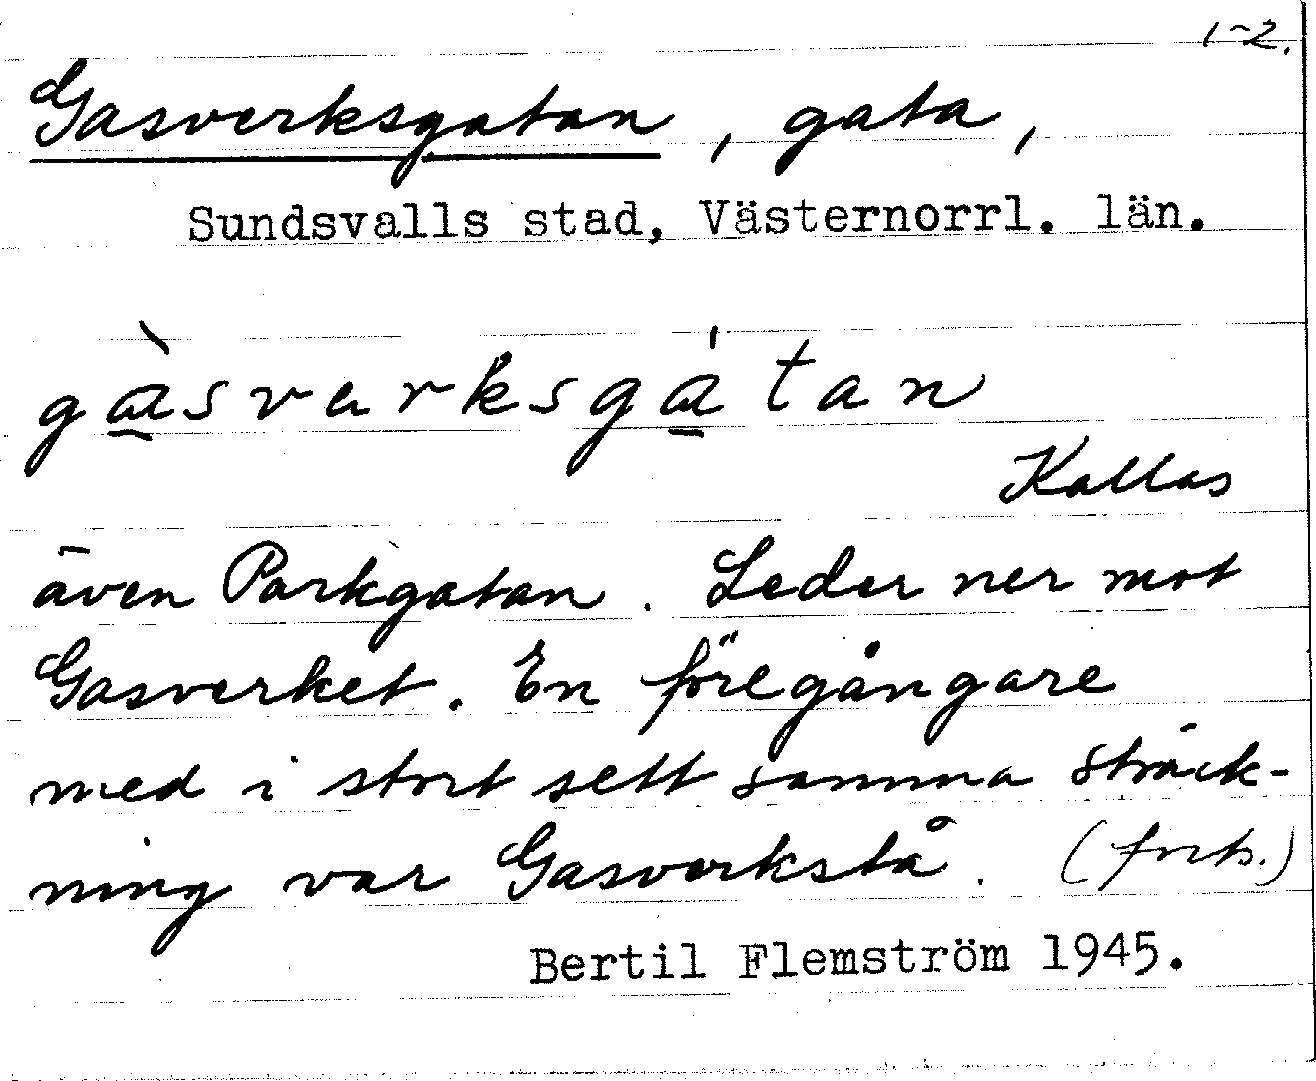 1-2.
Gasverksgatan, gata,
Sundsvalls stad, Västernorrl. län.
gàsvarksgátan
Kallas
även Parkgatan. Leder ner mot
Gasverket. En föregångare
med i stort sett samma sträck-
ning var Gasverkstå. (forts.)
Bertil Flemström 1945.